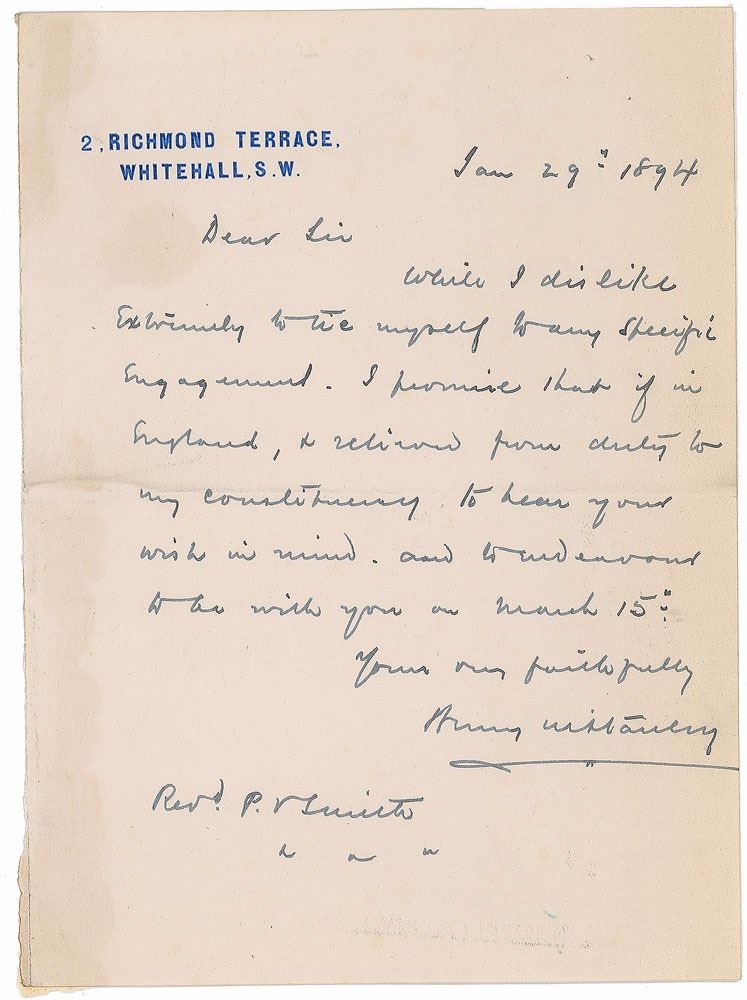 2, RICHMOND TERRACE,
WHITEHALL, S.W.
Jan 29th 1894
Dear Sir
While I dislike
Extremely to tie myself to any Specific
Engagement. I promise that if in
England, & relieved from duty to
my constituency to bear your
wish in mind. and to endeavour
to be with you on March 15th
Yours very faithfully
Henry M Stanley
Revd. P. V Smith